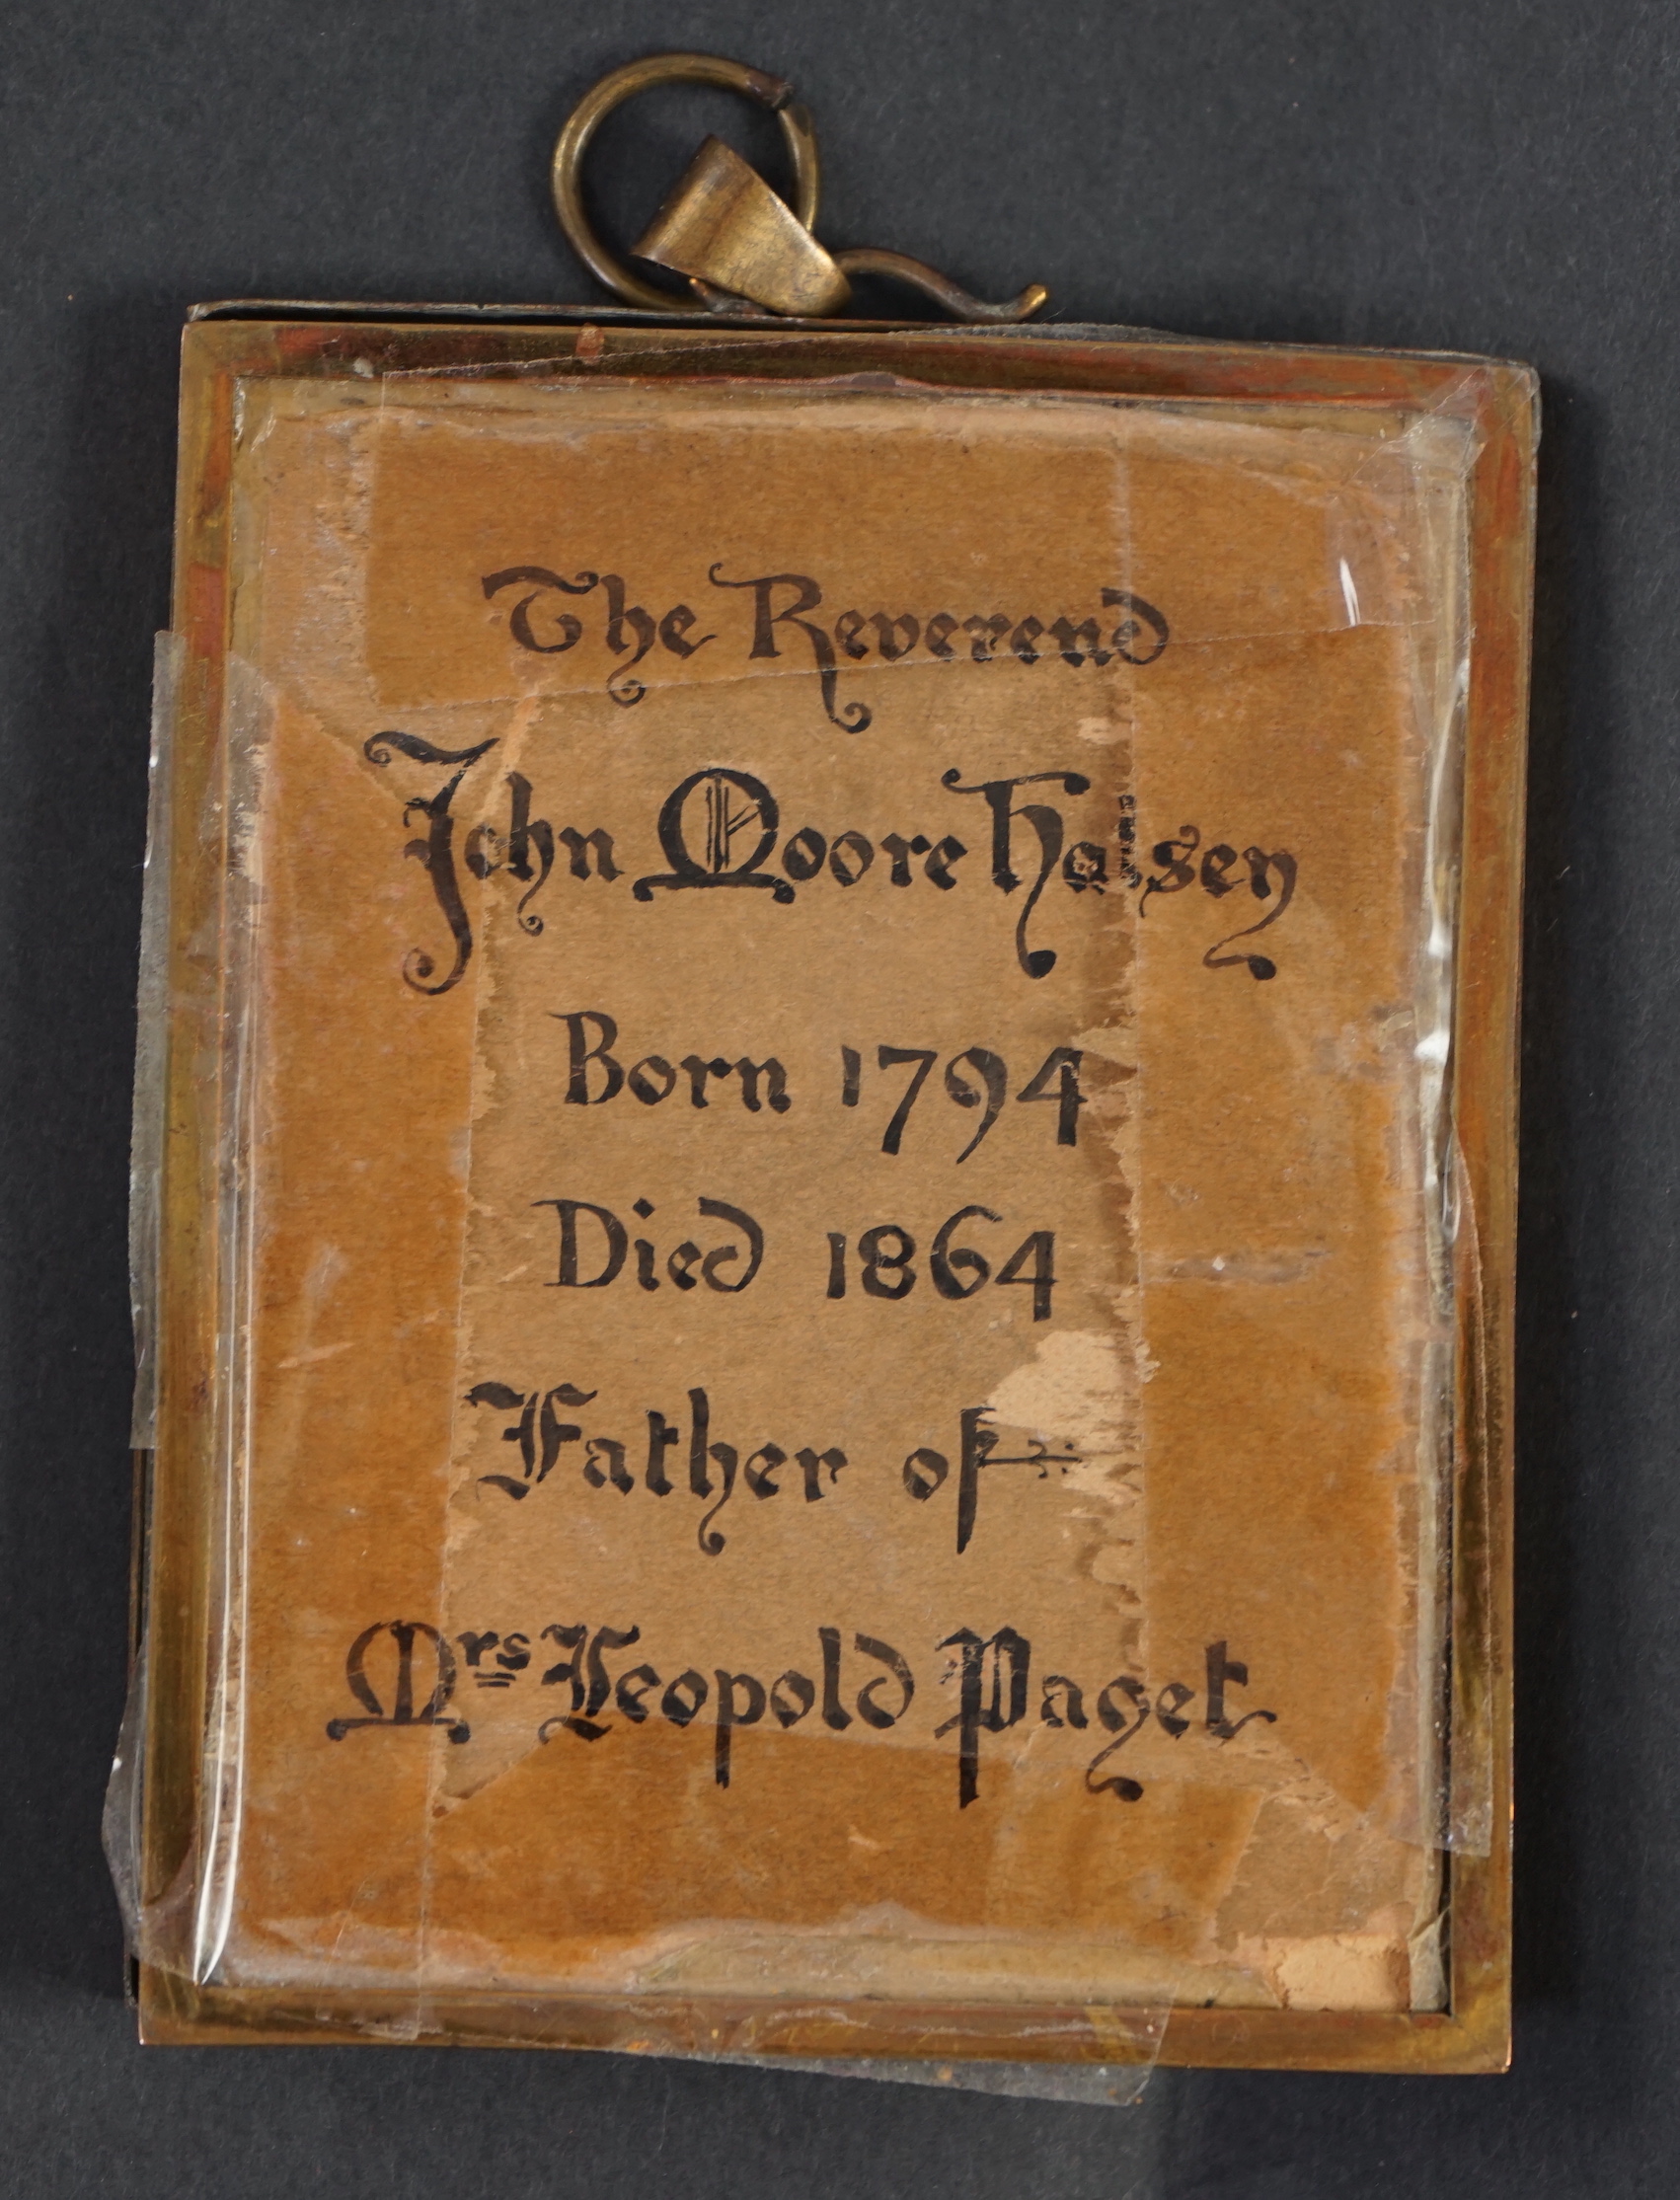 The Reverend
John Moore Halsey
Born 1794
Died 1864
Father of
Mrs Leopold Paget